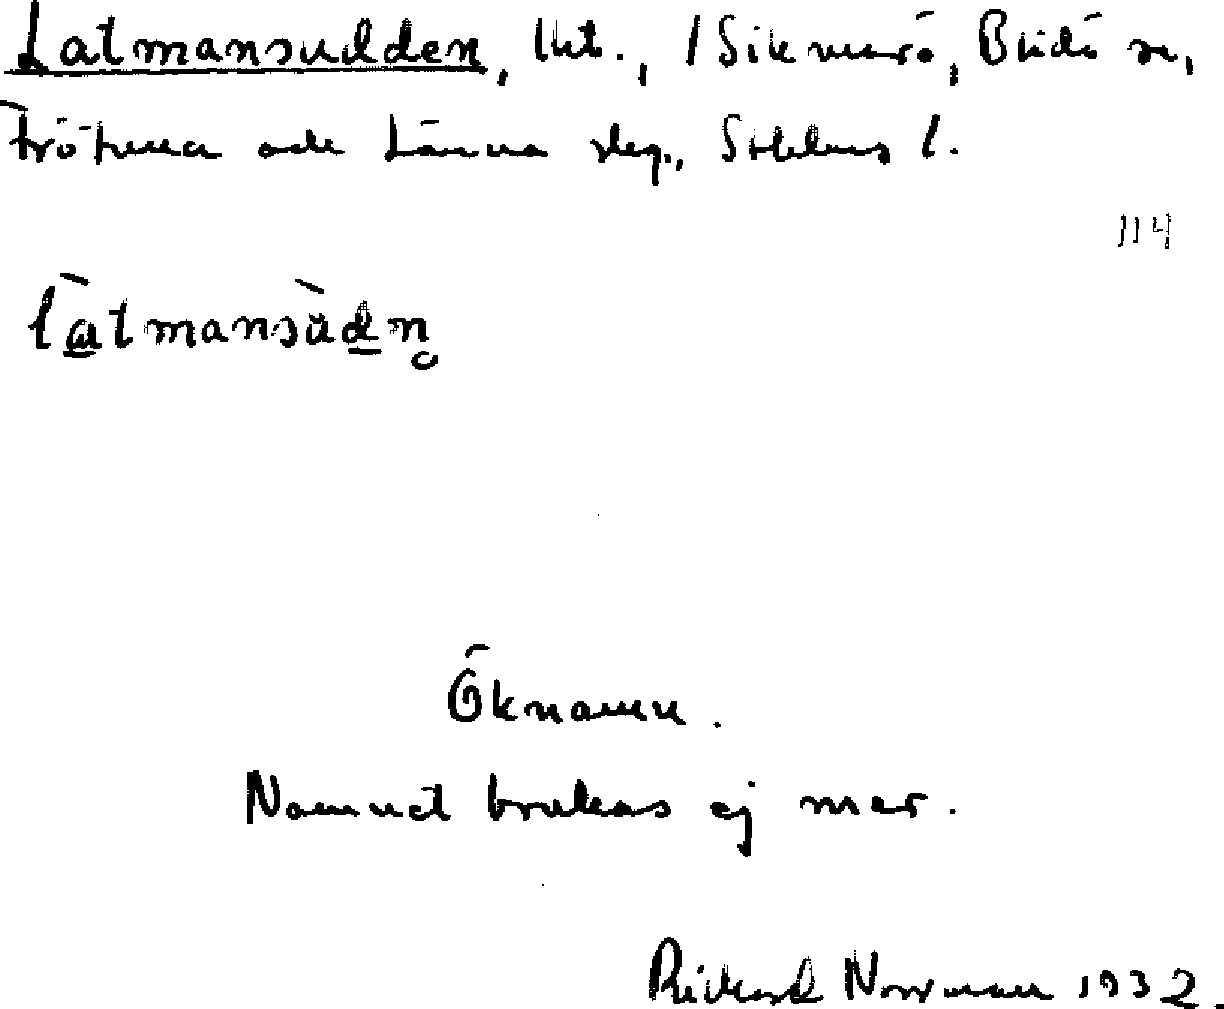 Latmansudden, lht., / Sikmarö, Blidö sn,
Frötuna och Länna slg., Sthlms l.
114
làtmansùdṇ
Öknamn.
Namnet brukas ej mer.
Rickard Norrman 1932.